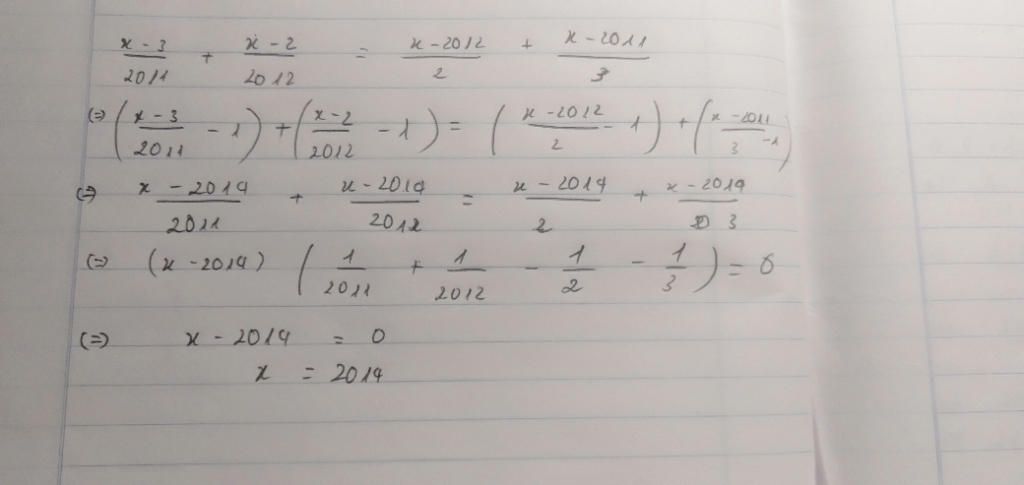 x - 3 / 2011 + x - 2 / 2012 = x - 2012 / 2 + x - 2011 / 3
(=) (x - 3 / 2011 - 1) + (x - 2 / 2012 - 1) = (x - 2012 / 2 - 1) + (x - 2011 / 3 - 1)
(=) x - 2014 / 2011 + x - 2014 / 2012 = x - 2014 / 2 + x - 2014 / 3
(=) (x - 2014) (1 / 2011 + 1 / 2012 - 1 / 2 - 1 / 3) = 0
(=) x - 2014 = 0
x = 2014